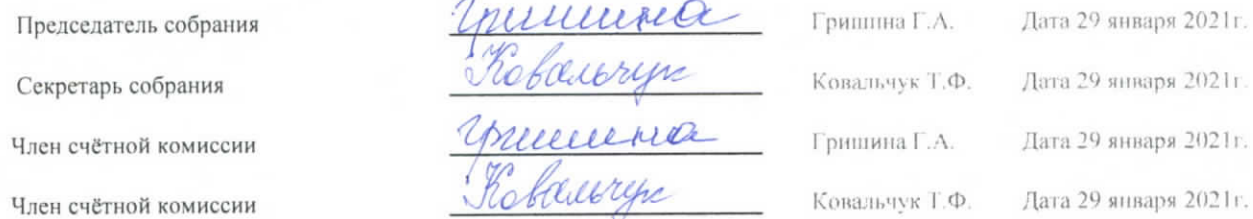 Председатель собрания Гришина Гришина Г.А. Дата 29 января 2021г.
Секретарь собрания Ковальчук Ковальчук Т.Ф. Дата 29 января 2021г.
Член счётной комиссии Гришина Гришина Г.А. Дата 29 января 2021г.
Член счётной комиссии Ковальчук Ковальчук Т.Ф. Дата 29 января 2021г.